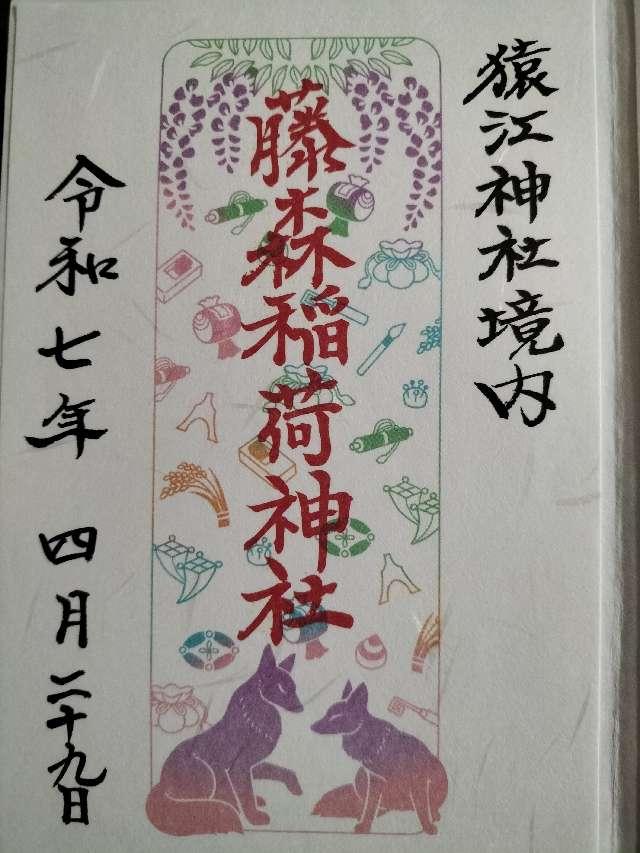 猿江神社境内
藤森稲荷神社
令和七年 四月二十九日